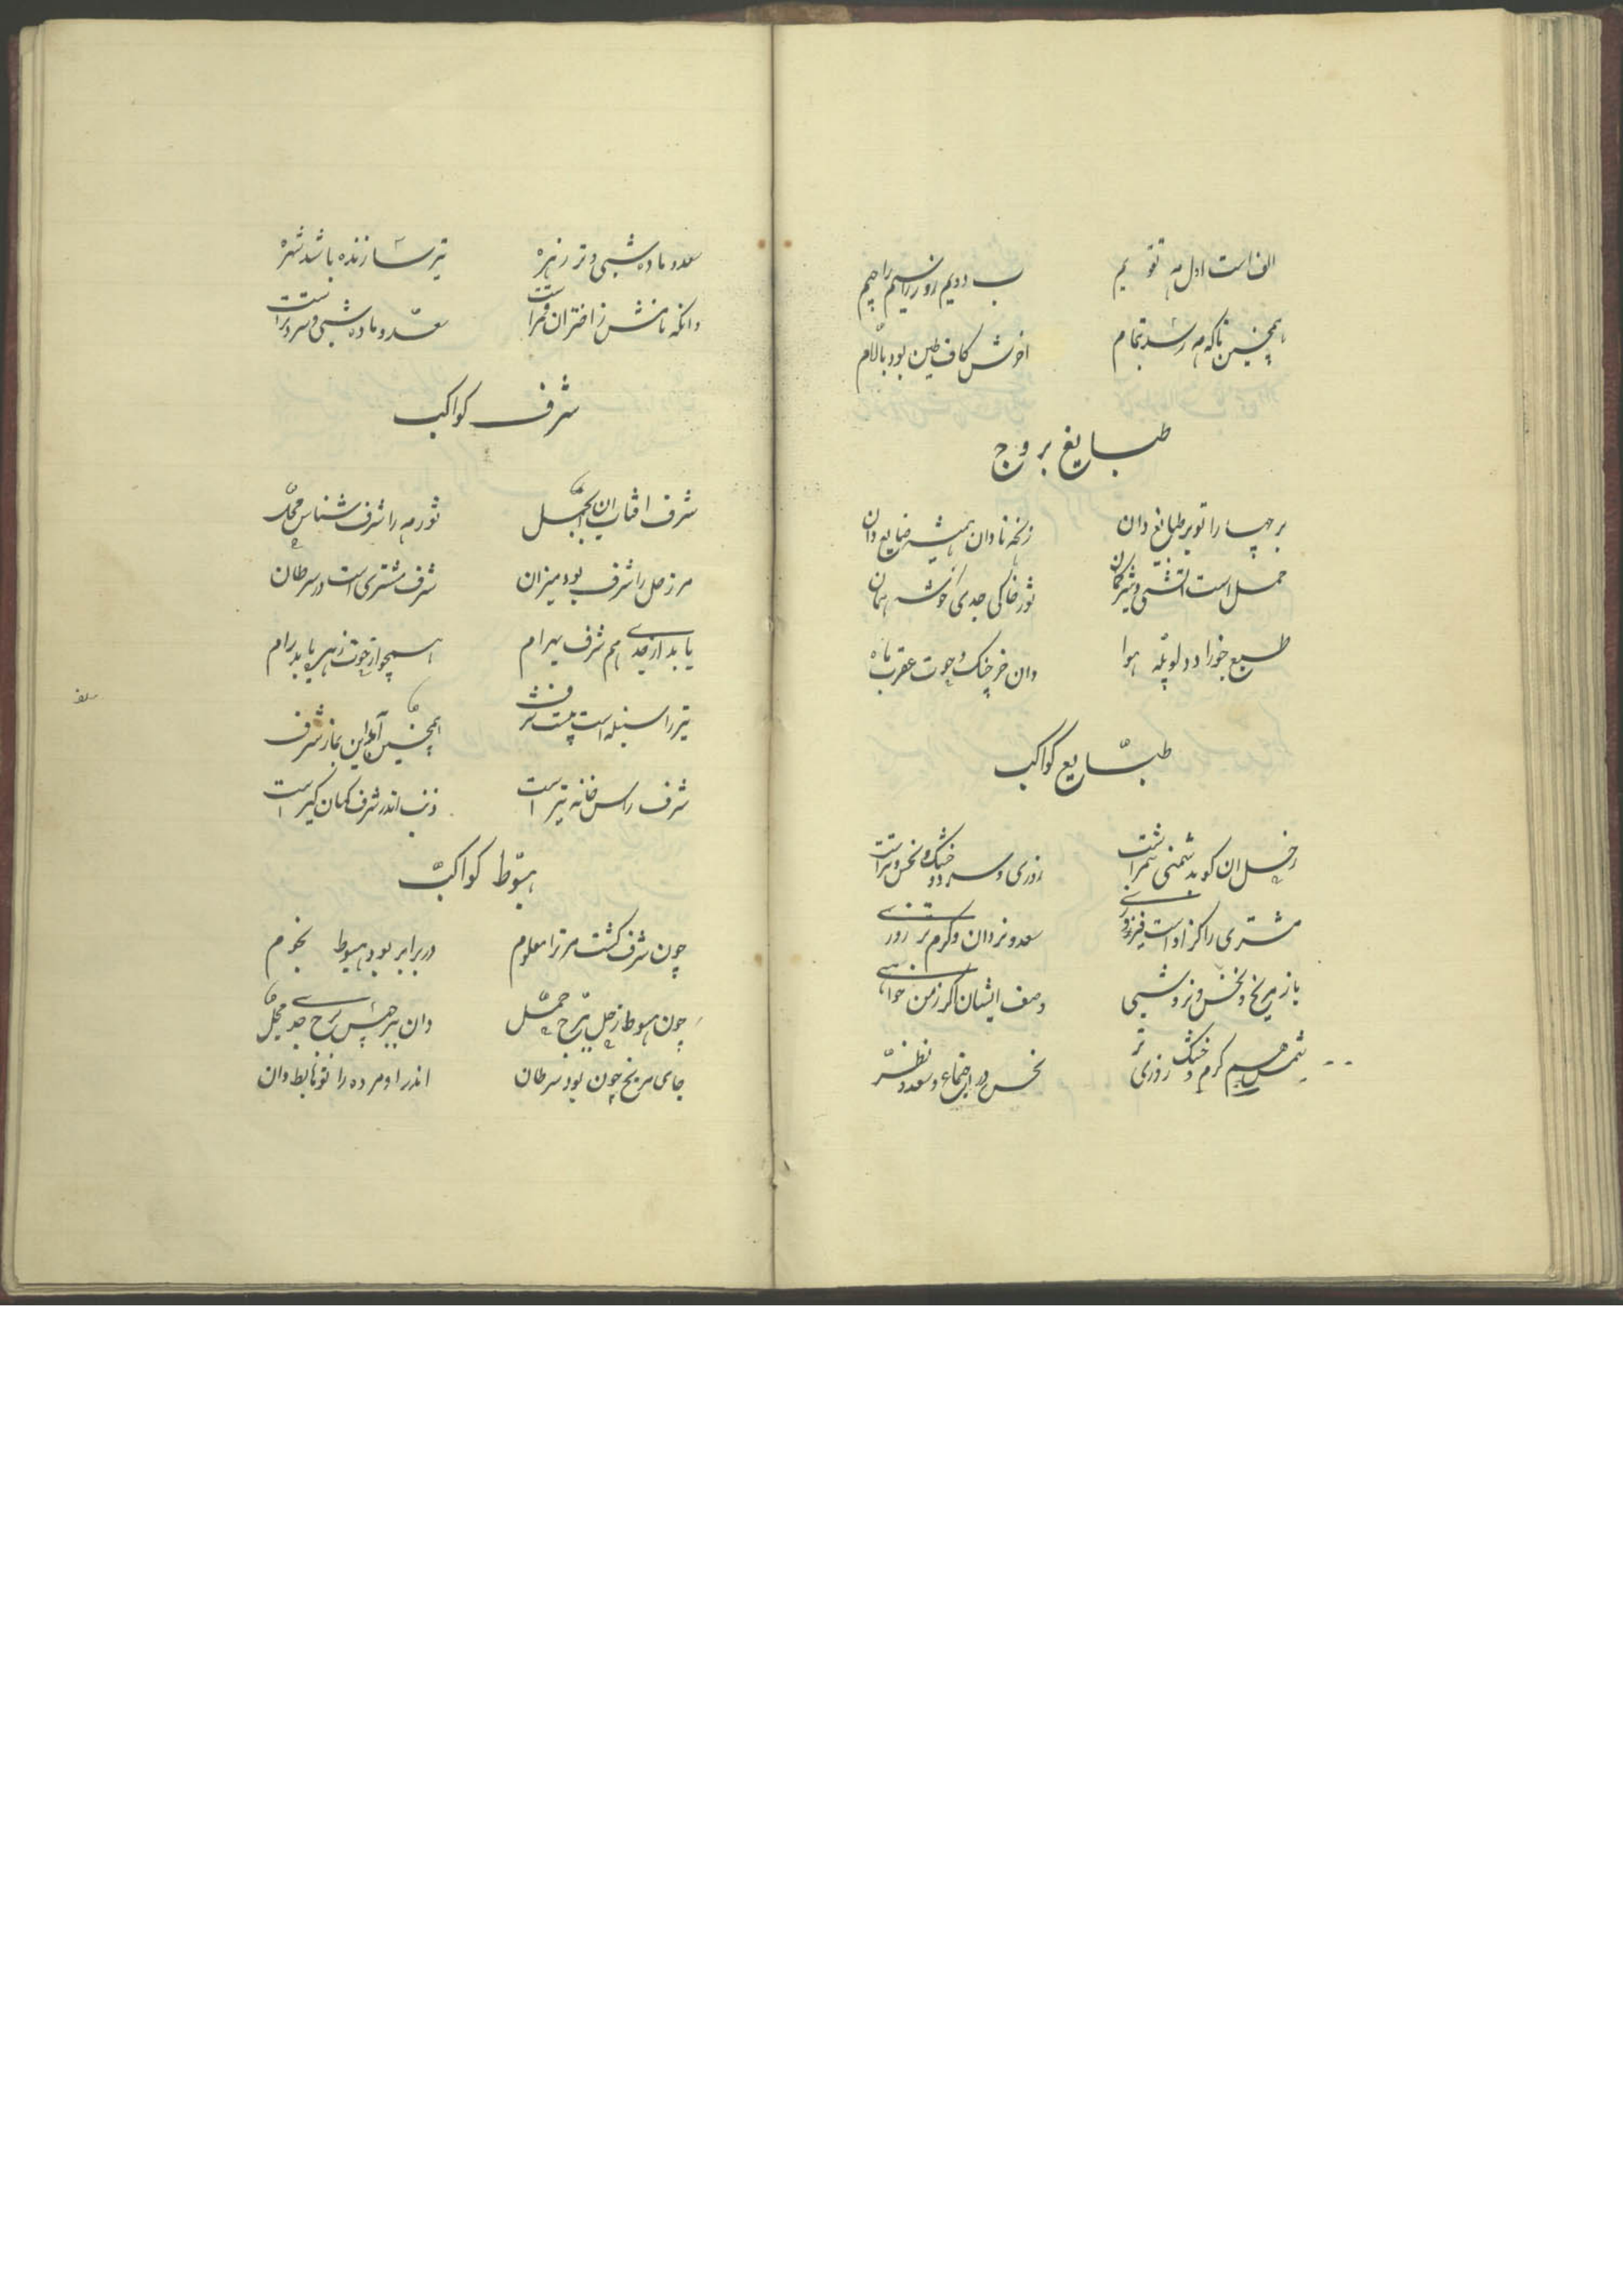 الف است اول مه تقویم
ب دویم روز را سیم را جیم
همچنین تا که مه رسد بتمام
آخرش کاف طین بود بالام
طبایع بروج
برجها را تو بر طبایع دان
حمل است آتشی و شیر کمان
ثور خاکی جدی خوشه همان
طبع جوزا و دلو پله هوا
دان خرچنگ و حوت عقرب ماه
طبایع کواکب
زحل ان کو بدشمنی سمراست
روزی و سرد و خشک و نحس و نر است
مشتری را کز او است فیروزی
سعد و نر دان و گرم تر روزی
باز مریخ و نحس و نر و شبی
وصف ایشان اگر ز من خواهی
شمس هم گرم و خشک روزی نر
نحس در اجتماع و سعد نظر
سعد و ماده شبی و تر زهره
تیر سازنده باشد شهره
وانکه نامش ز اختران قمر است
سعد و ماده شبی و سرد و تر است
شرف کواکب
شرف افتاب ان حمل
ثور مه را شرف شناس محل
مر زحل را شرف بود میزان
شرف مشتری است در سرطان
یابد از جدی هم شرف بهرام
همچو از حوت زهره یابد رام
تیر را سنبله است بیت شرف
همچنین آمد این نماز شرف
شرف راس خانه تیر است
ذنب اندر شرف کمان گیر است
هبوط کواکب
چون شرف گشت مر ترا معلوم
در برابر بود هبوط نجوم
چون هبوط زحل ببرج حمل
دان ببرجیس برج جدی محل
جای مریخ چون بود سرطان
اندر او مرده را تو هابط دان